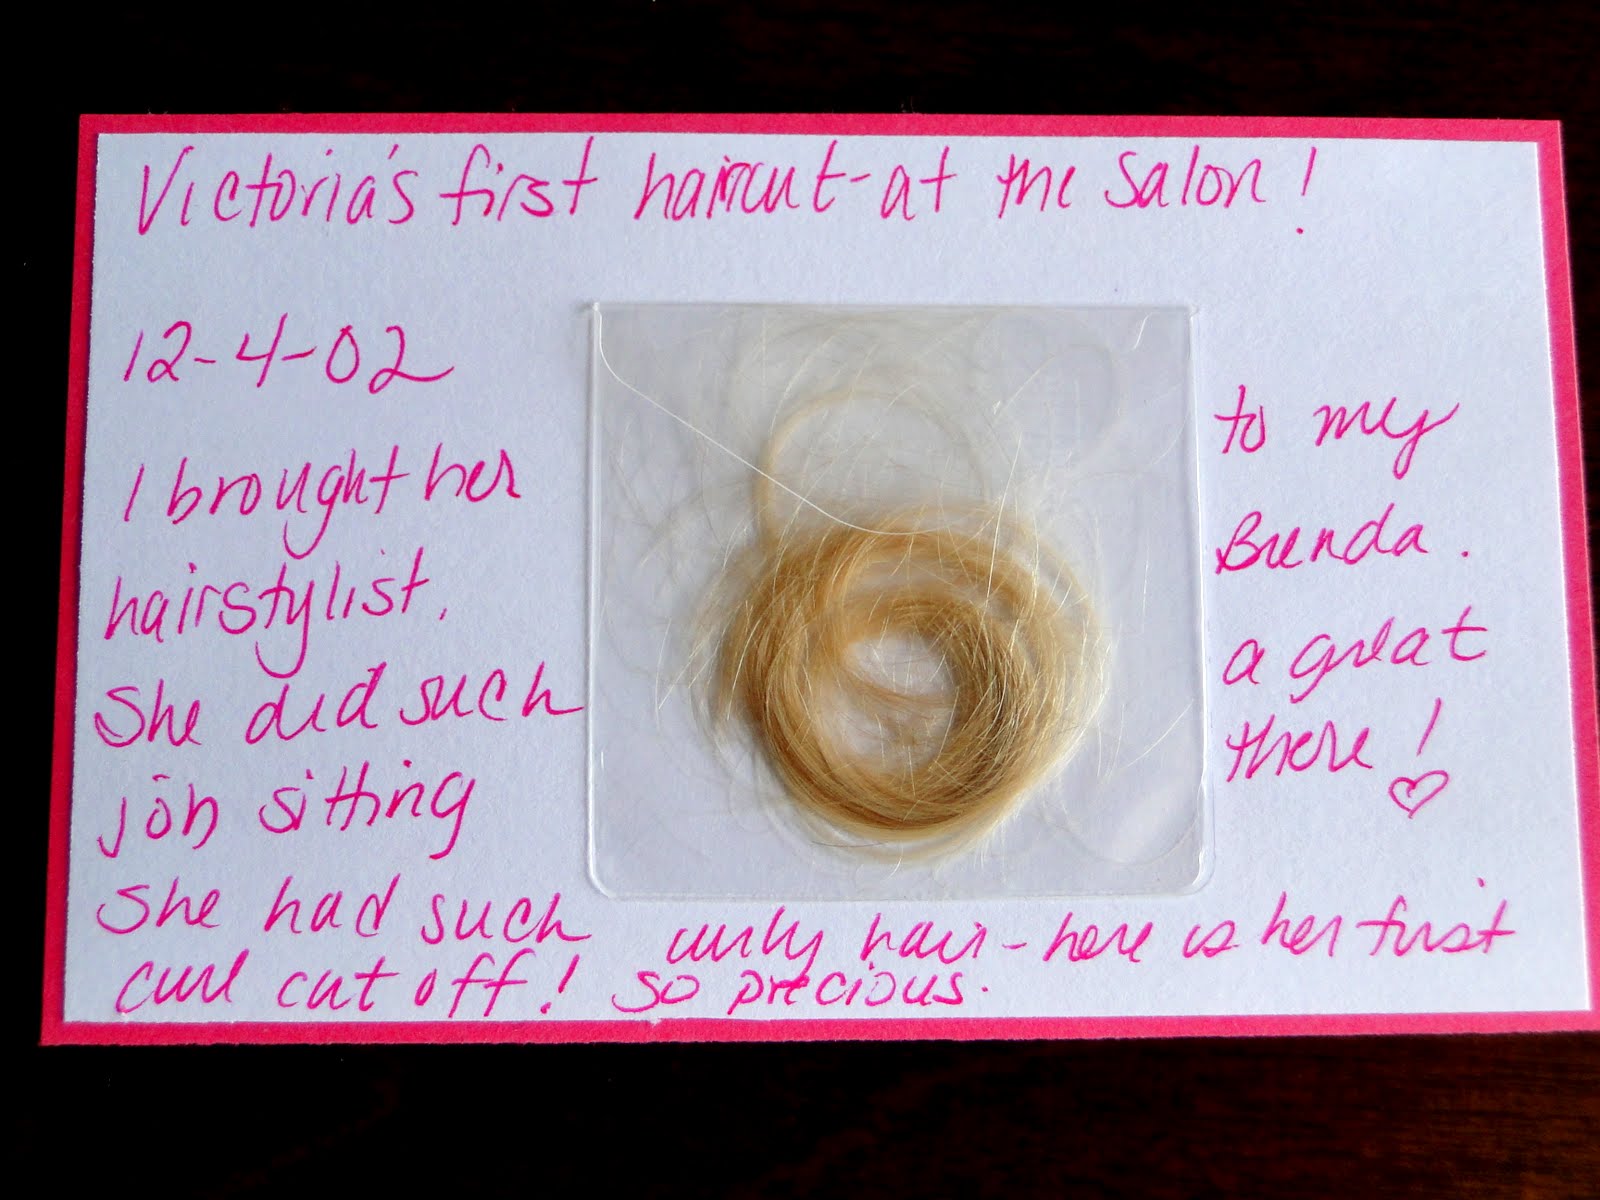 Victoria's first haircut-at the salon!
12-4-02
I brought her to my
hairstylist, Brenda.
She did such a great
job sitting there! ♡
She had such curly hair - here is her first
curl cut off! so precious.